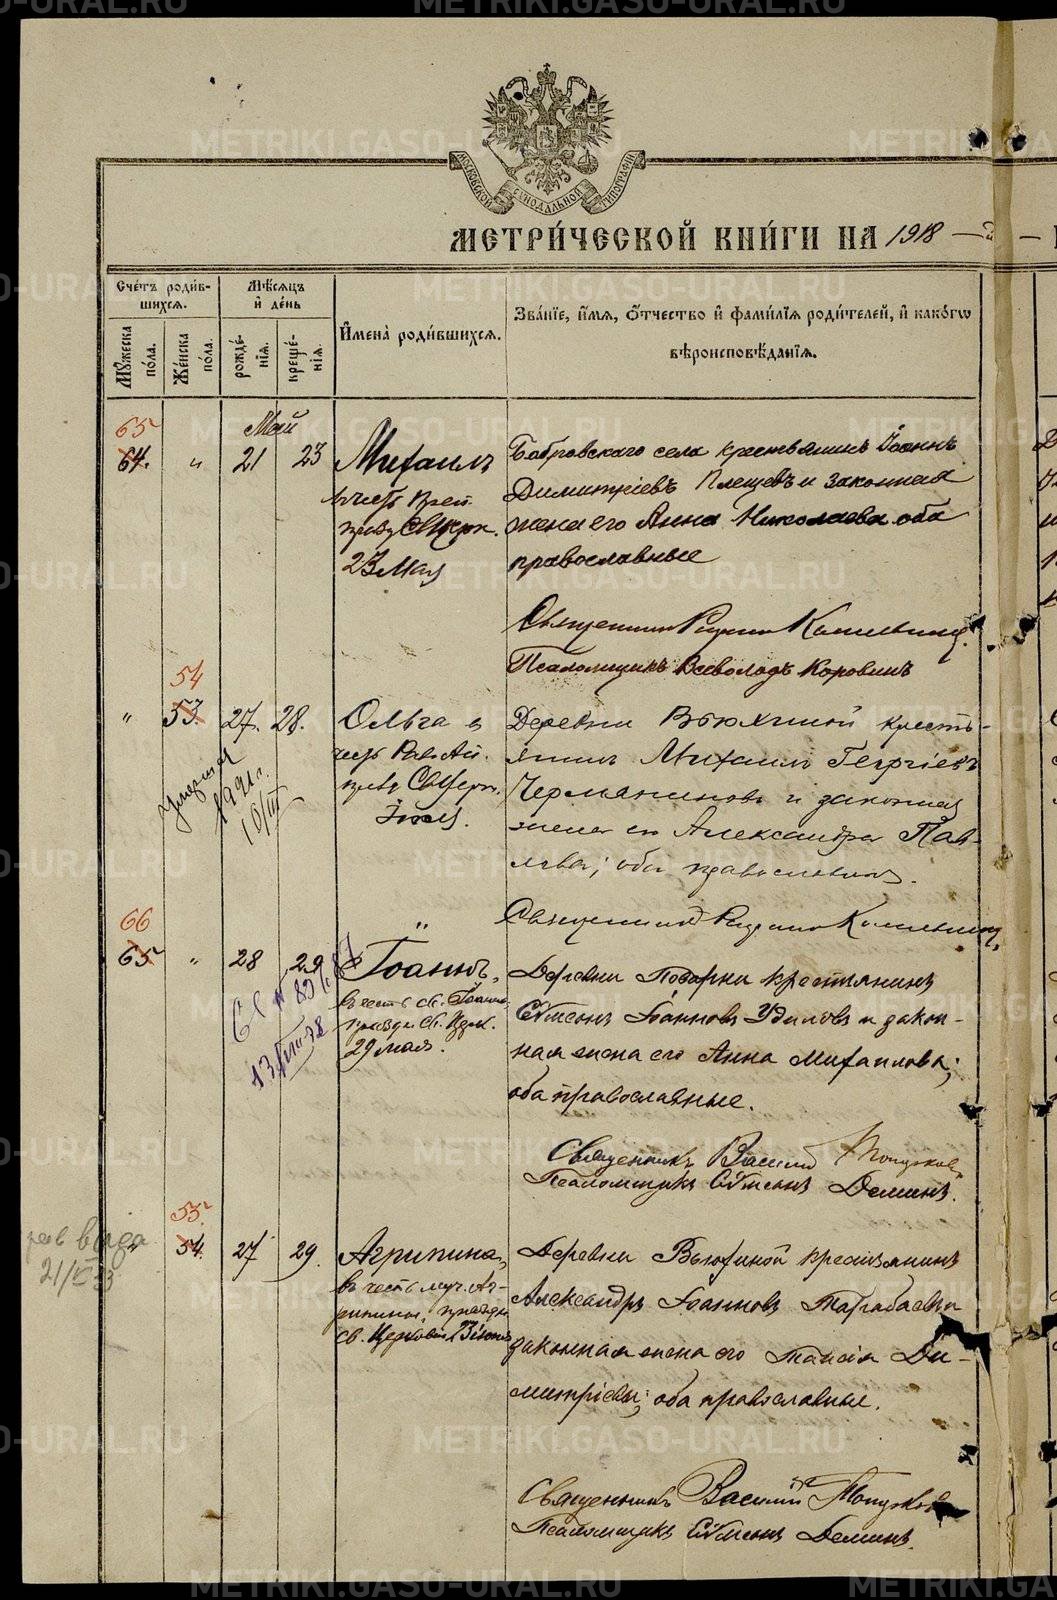 METRIKI.GASO-URAL.RU
МОСКОВСКОЙ СѴНОДАЛЬНОЙ ТИПОГРАФІИ
МЕТРИ́ЧЕСКОЙ КНИ́ГИ НА 1918
Сче́тъ роди́в-
шихсѧ.
Мѣ́сѧцъ
и҆ де́нь
Мꙋ́жеска по́ла.
Же́нска по́ла.
рожде́-
нїѧ.
креще́-
нїѧ.
И҆мена̀ роди́вшихсѧ.
Зва́нїе, и҆́мѧ, ѻ҆́тчество и҆ фами́лїѧ роди́телей, и҆ како́гѡ
вѣроисповѣ́данїѧ.
65
Май
64. " 21 23 Михаилъ
23 Мая
Бобровскаго села крестьянинъ Іоаннъ
Димитріевъ Плещевъ и законная
жена его Анна Николаева оба
православные
Священникъ
Псаломщикъ Всеволодъ Коровинъ
54
" 53. 27. 28. Ольга в
Деревни Вьюхиной кресть-
янинъ Михаилъ Георгіевъ
Чермяниновъ и законная
жена его Александра Пав-
лова; оба православные.
Умерла
1991 г.
10/III
Священникъ
66
65 " 28 29 Іоаннъ,
въ честь св. Іоанна
29 мая.
Деревни Поварни крестьянинъ
Сѵмеонъ Іоанновъ Удиловъ и закон-
ная жена его Анна Михаилова;
оба православные.
Священникъ Василій
Псаломщикъ Сѵмеонъ Деминъ.
55.
" 54. 27 29. Агрипина,
въ честь муч. Аг-
рипины, празд.
св. Церковію 23 іюня
Деревни Вьюхиной крестьянинъ
Александръ Іоанновъ
законная жена его Таисія Ди-
митріева; оба православные.
Священникъ Василій
Псаломщикъ Сѵмеонъ Деминъ.